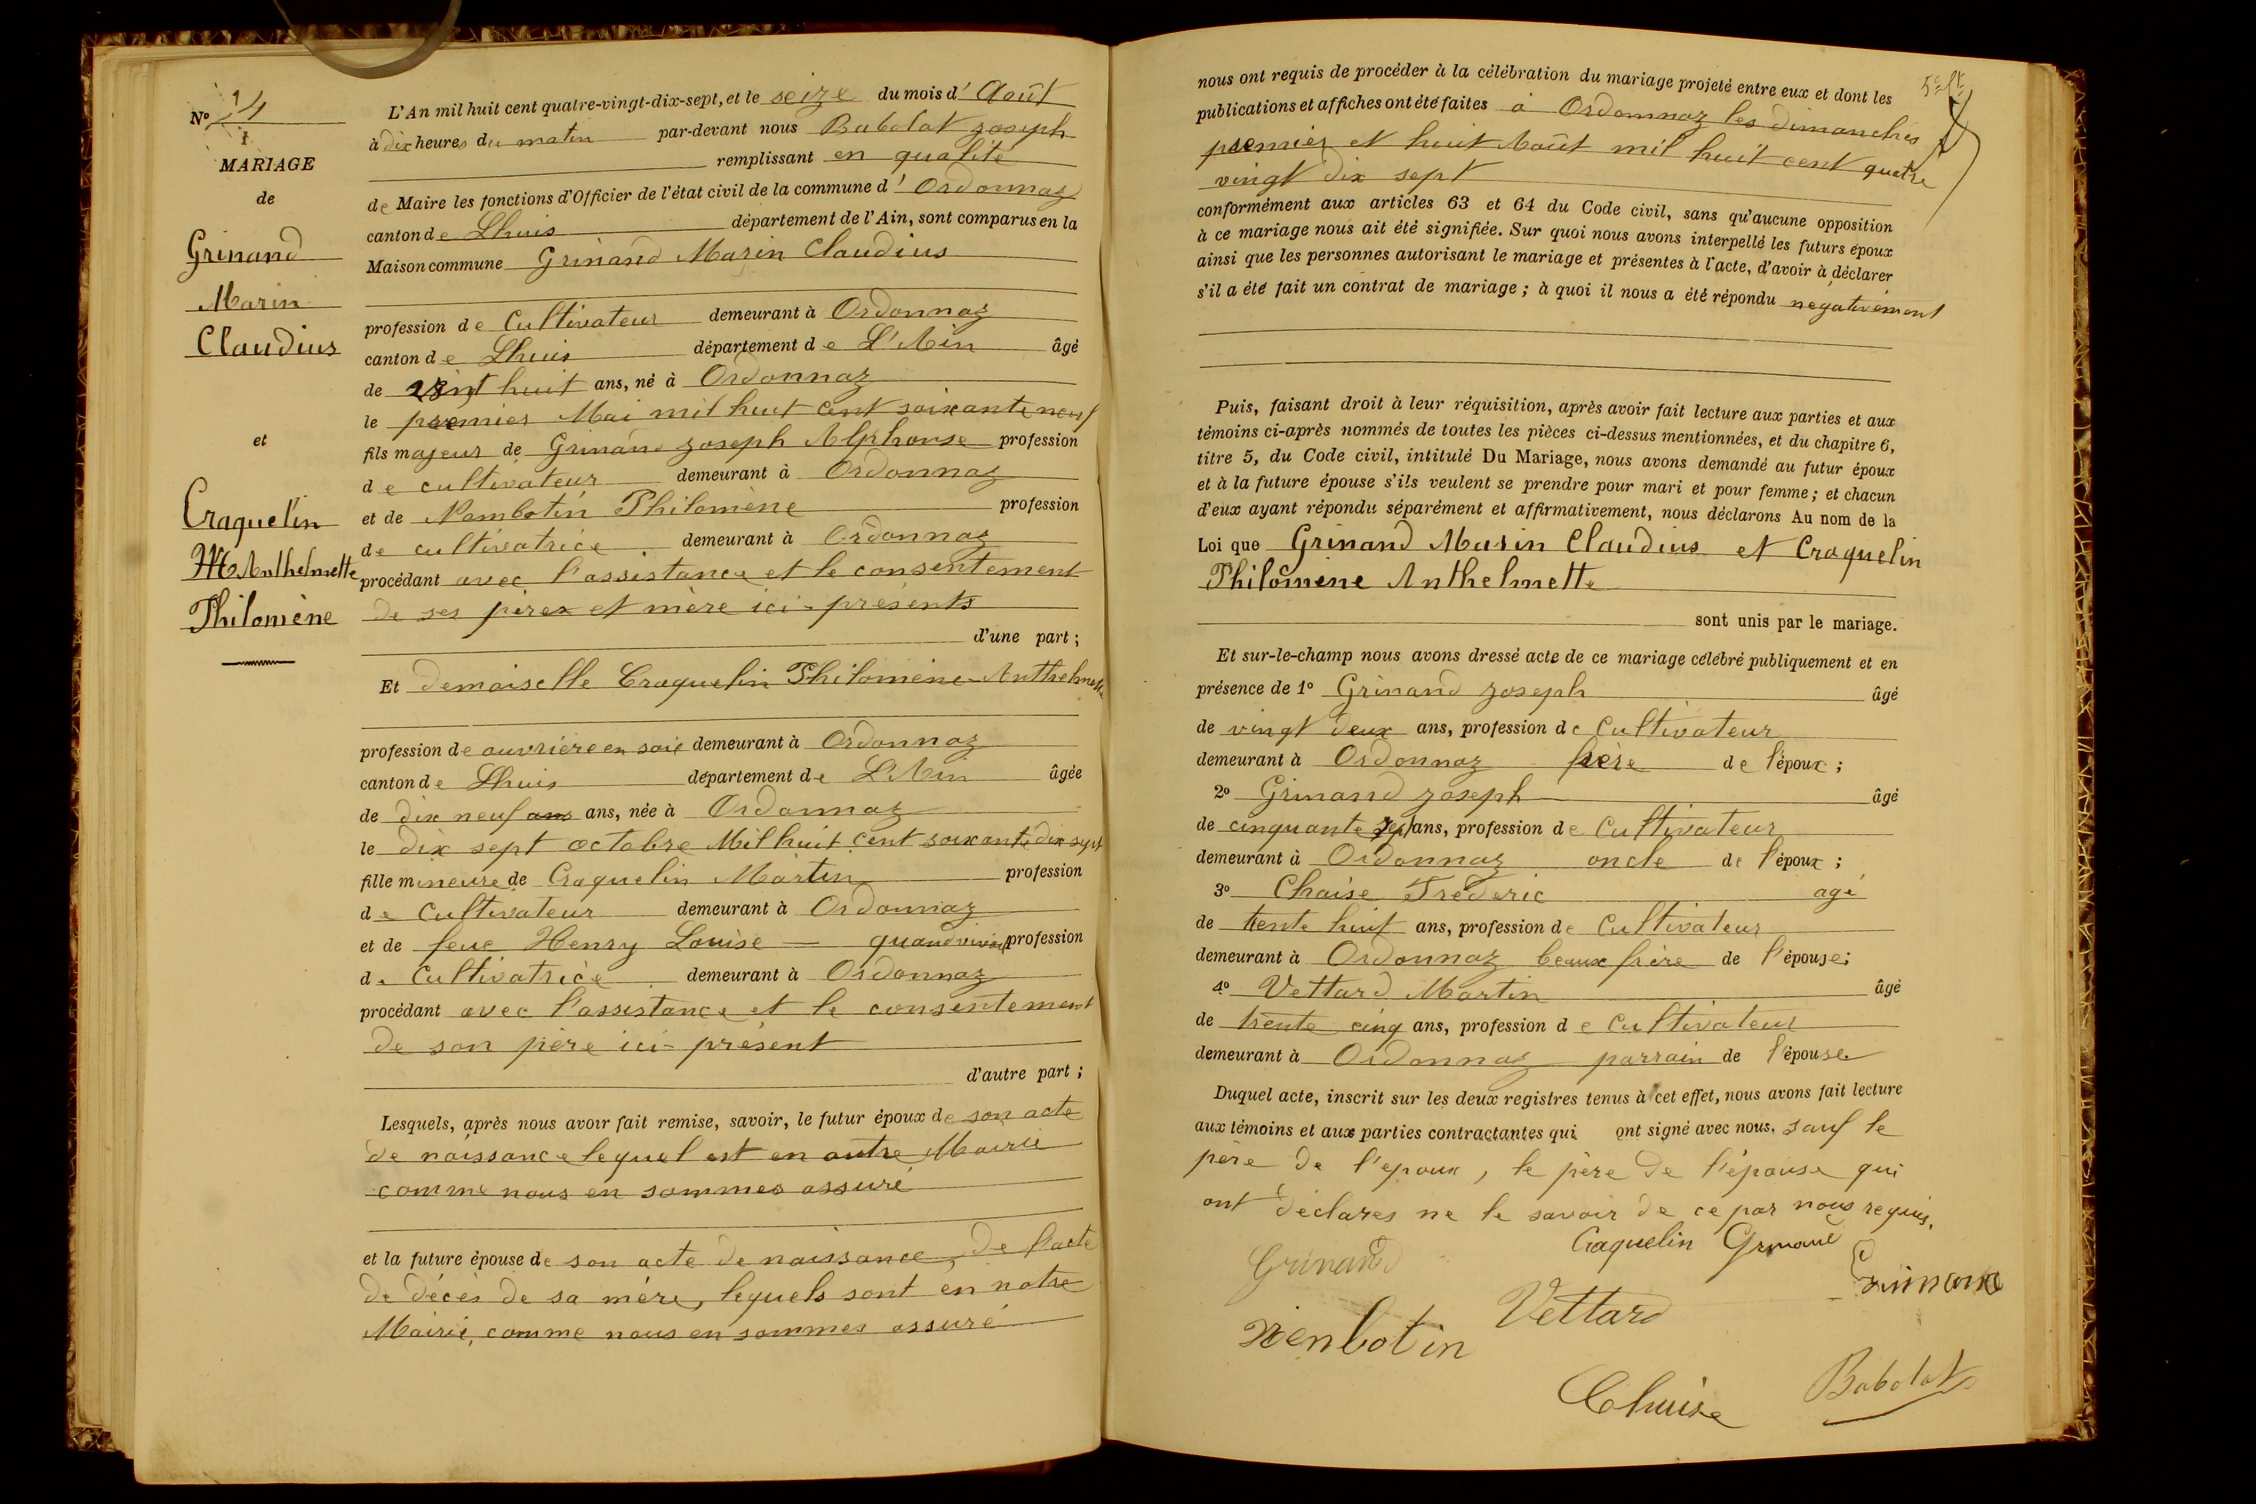 Nº 4
MARIAGE
de
Grinand
Marin
Claudius
et
Craquelin
M Anthelmette
Philomène
L'An mil huit cent quatre-vingt-dix-sept, et le seize du mois d' Août
à dix heures du matin par-devant nous Babolat Joseph
remplissant en qualité
de Maire les fonctions d'Officier de l'état civil de la commune d' Ordonnaz
canton de Lhuis département de l'Ain, sont comparus en la
Maison commune Grinand Marin Claudius
profession de Cultivateur demeurant à Ordonnaz
canton de Lhuis département de L'Ain âgé
de vingt huit ans, né à Ordonnaz
le premier Mai mil huit cent soixante neuf
fils majeur de Grinand Joseph Alphonse profession
de cultivateur demeurant à Ordonnaz
et de Nambotin Philomène profession
de cultivatrice demeurant à Ordonnaz
procédant avec l'assistance et le consentement
de ses père et mère ici-présents
d'une part ;
Et demoiselle Craquelin Philomène Anthelmette
profession de ouvrière en soie demeurant à Ordonnaz
canton de Lhuis département de L'Ain âgée
de dix neuf ans ans, née à Ordonnaz
le dix sept octobre Mil huit cent soixante dix sept
fille mineure de Craquelin Martin profession
de Cultivateur demeurant à Ordonnaz
et de feue Henry Louise quand vivait profession
de Cultivatrice demeurant à Ordonnaz
procédant avec l'assistance et le consentement
de son père ici-présent
d'autre part ;
Lesquels, après nous avoir fait remise, savoir, le futur époux de son acte
de naissance lequel est en autre Mairie
comme nous en sommes assuré
et la future épouse de son acte de naissance, de l'acte
de décès de sa mère, lequels sont en notre
Mairie, comme nous en sommes assuré
nous ont requis de procéder à la célébration du mariage projeté entre eux et dont les
publications et affiches ont été faites à Ordonnaz les dimanches
premier et huit Août mil huit cent quatre
vingt dix sept
conformément aux articles 63 et 64 du Code civil, sans qu'aucune opposition
à ce mariage nous ait été signifiée. Sur quoi nous avons interpellé les futurs époux
ainsi que les personnes autorisant le mariage et présentes à l'acte, d'avoir à déclarer
s'il a été fait un contrat de mariage ; à quoi il nous a été répondu négativement
Puis, faisant droit à leur réquisition, après avoir fait lecture aux parties et aux
témoins ci-après nommés de toutes les pièces ci-dessus mentionnées, et du chapitre 6,
titre 5, du Code civil, intitulé Du Mariage, nous avons demandé au futur époux
et à la future épouse s'ils veulent se prendre pour mari et pour femme ; et chacun
d'eux ayant répondu séparément et affirmativement, nous déclarons Au nom de la
Loi que Grinand Marin Claudius et Craquelin
Philomène Anthelmette
sont unis par le mariage.
Et sur-le-champ nous avons dressé acte de ce mariage célébré publiquement et en
présence de 1º Grinand Joseph âgé
de vingt deux ans, profession de Cultivateur
demeurant à Ordonnaz frère de l'époux ;
2º Grinand Joseph âgé
de cinquante sept ans, profession de Cultivateur
demeurant à Ordonnaz oncle de l'époux ;
3º Chaise Fréderic agé
de trente huit ans, profession de Cultivateur
demeurant à Ordonnaz beaux frère de l'épouse ;
4º Vettard Martin âgé
de trente cinq ans, profession de Cultivateur
demeurant à Ordonnaz parrain de l'épouse
Duquel acte, inscrit sur les deux registres tenus à cet effet, nous avons fait lecture
aux témoins et aux parties contractantes qui ont signé avec nous. Sauf le
père de l'époux, le père de l'épouse qui
ont déclarés ne le savoir de ce par nous requis.
Craquelin Grinand
Grinand
Grinand
Vettard
Nenbotin
Chaise
Babolat